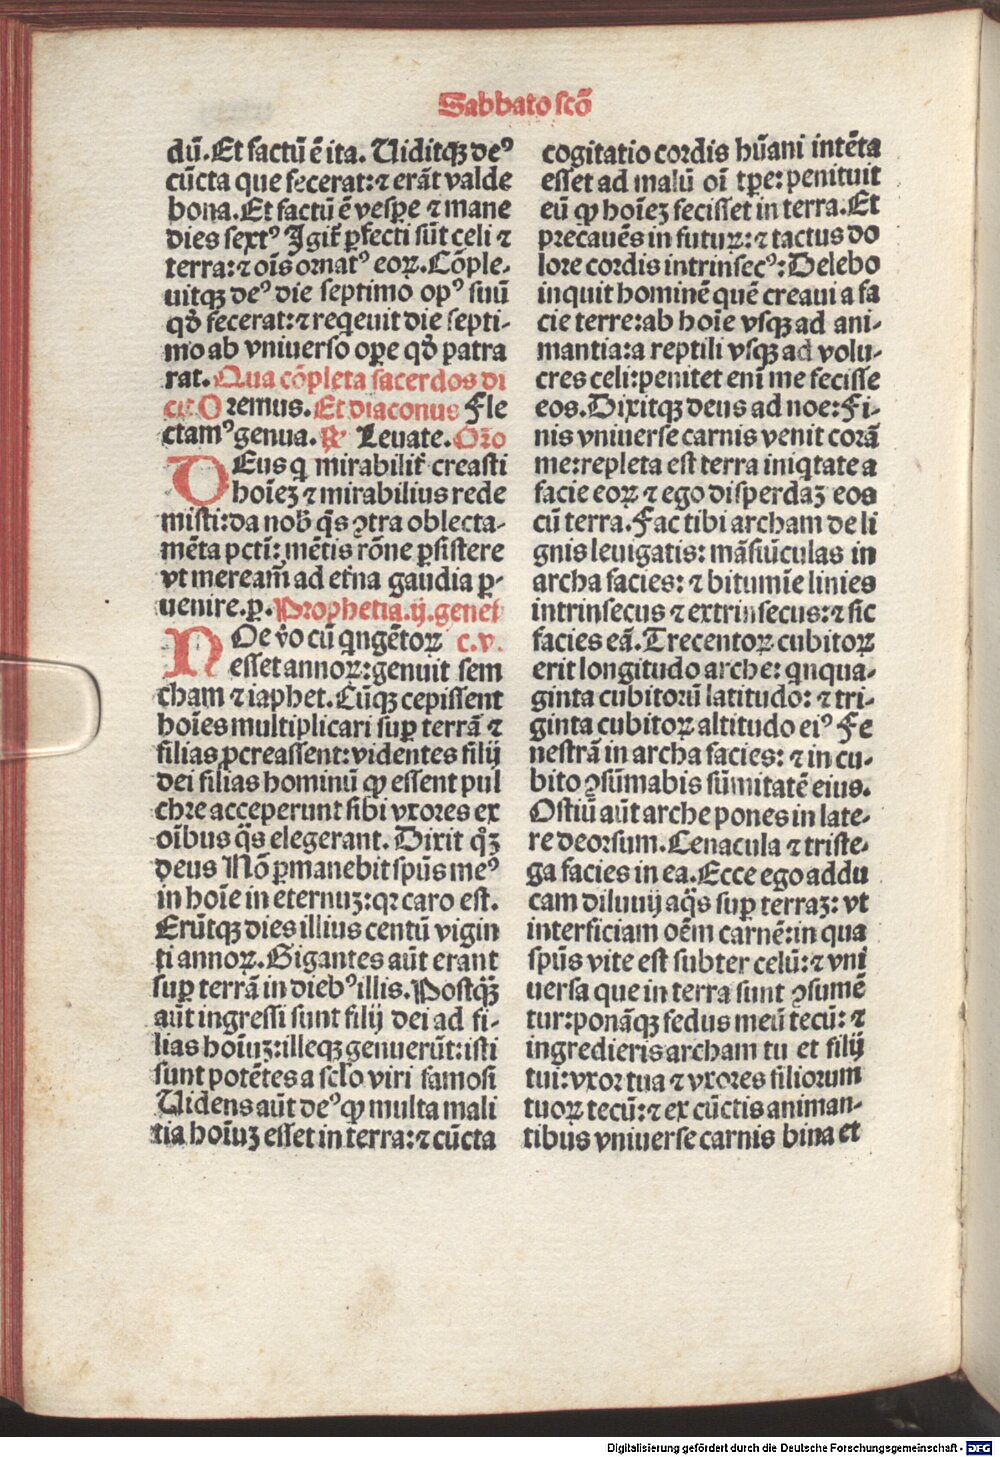 Sabbato scō
dū. Et factū ē ita. Uiditqꝫ deꝰ
cūcta que fecerat: ⁊ erāt valde
bona. Et factū ē vesꝑe ⁊ mane
dies sextꝰ Igit̄ ꝑfecti sūt celi ⁊
terra: ⁊ oīs ornatꝰ eoꝝ. Cōple-
uitqꝫ deꝰ die septimo opꝰ suū
qđ fecerat: ⁊ reqeuit die septi-
mo ab vniuerso oꝑe qđ patra
rat. Qua cōpleta sacerdos di
cit Oremus. Et diaconus Fle
ctamꝰ genua. ℟ Leuate. Oro
DEus q̄ mirabilit̄ creasti
hoīeꝫ ⁊ mirabilius rede
misti: da nob̄ q̄s ꝯtra oblecta-
mēta pctī: mētis rōne ꝑsistere
vt meream̄ ad et̄na gaudia ꝑ-
uenire. ꝑ. Prophetia. ij. genes
NOe v̄o cū qngētoꝝ c. v.
esset annoꝝ: genuit sem
cham ⁊ iaphet. Cūqꝫ cepissent
hoīes multiplicari suꝑ terrā ⁊
filias ꝓcreassent: videntes filij
dei filias hominū ꝙ essent pul
chre acceperunt sibi vxores ex
oībus q̄s elegerant. Dixit qꝫ
deus Nō ꝑmanebit spūs meꝰ
in hoīe in eternuꝫ: qꝛ caro est.
Erūtqꝫ dies illius centū vigin
ti annoꝝ. Gigantes aūt erant
suꝑ terrā in diebꝰ illis. Postq̄ꝫ
aūt ingressi sunt filij dei ad fi-
lias hoīuꝫ: illeqꝫ genuerūt: isti
sunt potētes a sclo viri famosi
Uidens aūt deꝰ ꝙ multa mali
tia hoīuꝫ esset in terra: ⁊ cūcta
cogitatio cordis hūani intēta
esset ad malū oī tꝑe: penituit
eū ꝙ hoīeꝫ fecisset in terra. Et
precauēs in futuꝝ: ⁊ tactus do
lore cordis intrinsecꝰ: Delebo
inquit hominē quē creaui a fa
cie terre: ab hoīe vsqꝫ ad ani-
mantia: a reptili vsqꝫ ad volu-
cres celi: penitet enī me fecisse
eos. Dixitqꝫ deus ad noe: Fi-
nis vniuerse carnis venit corā
me: repleta est terra iniqtate a
facie eoꝝ ⁊ ego disperdaꝫ eos
cū terra. Fac tibi archam de li
gnis leuigatis: māsiūculas in
archa facies: ⁊ bitumīe linies
intrinsecus ⁊ extrinsecus: ⁊ sic
facies eā. Trecentoꝝ cubitoꝝ
erit longitudo arche: qnqua-
ginta cubitorū latitudo: ⁊ tri-
ginta cubitoꝝ altitudo eiꝰ Fe
nestrā in archa facies: ⁊ in cu-
bito ꝯsūmabis sūmitatē eius.
Ostiū aūt arche pones in late-
re deorsum. Cenacula ⁊ triste-
ga facies in ea. Ecce ego addu
cam diluuij aq̄s suꝑ terraꝫ: vt
interficiam oēm carnē: in qua
spūs vite est subter celū: ⁊ vni
uersa que in terra sunt ꝯsumē
tur: ponāqꝫ fedus meū tecū: ⁊
ingredieris archam tu et filij
tui: vxor tua ⁊ vxores filiorum
tuoꝝ tecū: ⁊ ex cūctis animan-
tibus vniuerse carnis bina et
Digitalisierung gefördert durch die Deutsche Forschungsgemeinschaft - DFG